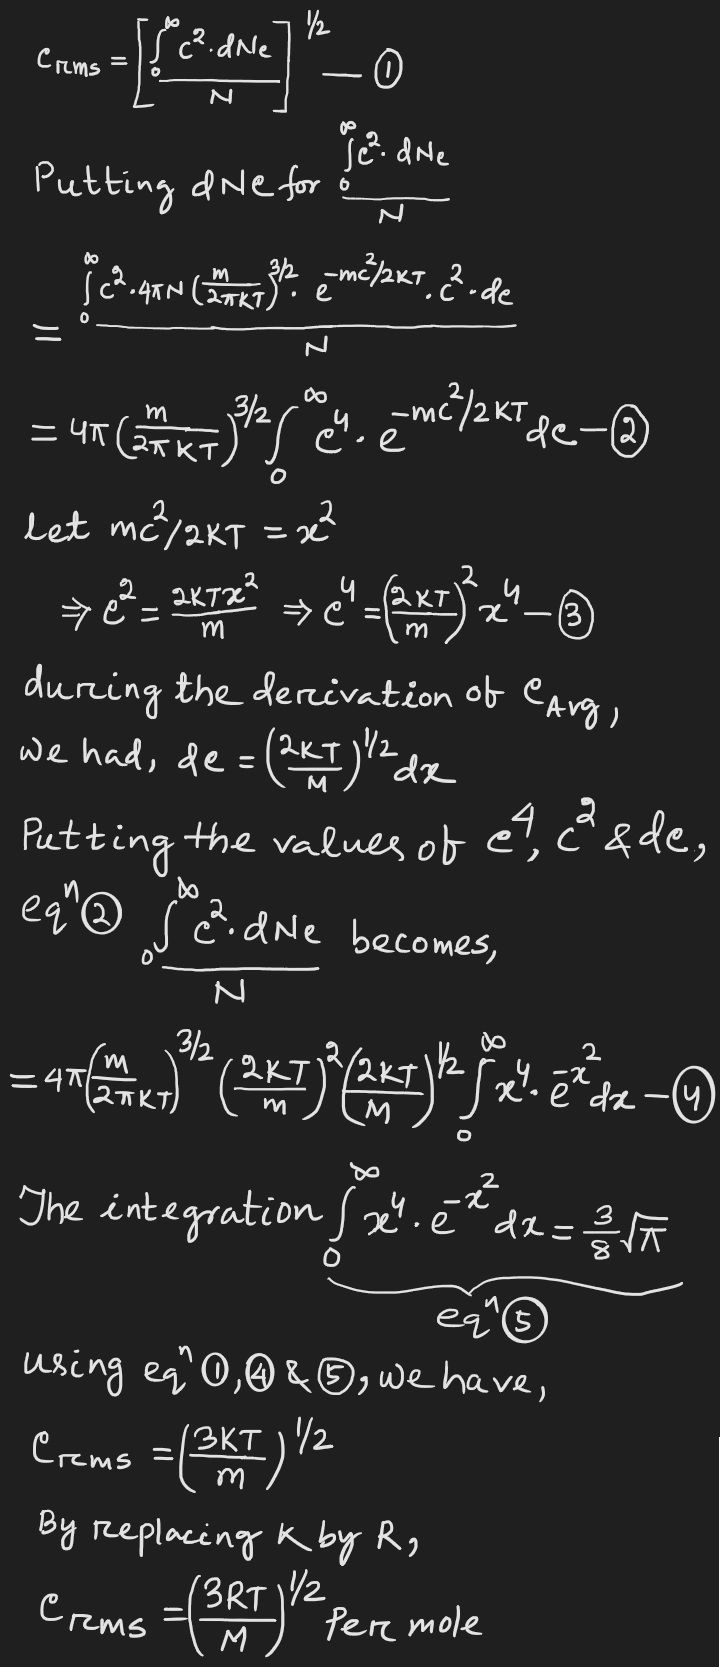 C rms = [∫₀^∞ c². dNc / N]^1/2 — ①
Putting dNc for ∫₀^∞ c². dNc / N
= ∫₀^∞ c². 4πN (m/2πKT)^3/2 . e^-mc²/2KT . c². dc / N
= 4π (m/2πKT)^3/2 ∫₀^∞ c⁴. e^-mc²/2KT dc — ②
Let mc²/2KT = x²
⇒ c² = 2KTx²/m ⇒ c⁴ = (2KT/m)² x⁴ — ③
during the derivation of C Avg,
We had, dc = (2KT/M)^1/2 dx
Putting the values of c⁴, c² & dc,
eqⁿ ② ∫₀^∞ c². dNc / N becomes,
= 4π (m/2πKT)^3/2 (2KT/m)² (2KT/M)^1/2 ∫₀^∞ x⁴. e^-x² dx — ④
The integration ∫₀^∞ x⁴. e^-x² dx = 3/8 √π
eqⁿ ⑤
using eqⁿ ①, ④ & ⑤, we have,
C rms = (3KT/m)^1/2
By replacing K by R,
C rms = (3RT/M)^1/2 Per mole